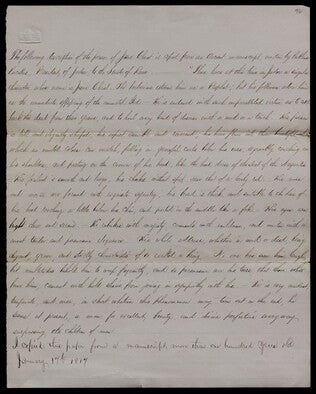 The following description of the person of Jesus Christ is copied from an ancient manuscript, written by Publius
Lentulus, President of Judea to the Senate of Rome. "There lives at this time in Judea a singular
character whose name is Jesus Christ. The
as the immortal offspring of the immortal God. He is endowed with such unparalleled virtue as to call
back the dead from their graves, and to heal every kind of disease with a word or a touch. His person
is tall and elegantly shaped, his aspect amiable and reverend; his hair flows in those beautiful shades
which no united colors can match, falling in graceful curls below his ears, agreeably couching on
his shoulders, and parting on the crown of his head, like the head dress of the sect of the Nazarites
His forehead is smooth and large, his cheeks without spot, save that of a lovely red. His nose
and mouth are formed with exquisite symmetry, his beard is thick and suitable to the hair of
his head reaching a little below his chin, and parted in the middle like a fork. His eyes are
bright clear and serene. He rebukes with majesty, counsels with mildness, and invites with the
most tender and persuasive language. His whole address, whether in word or deed, being
elegant, grave, and strictly characteristic of so exalted a being. No man has seen him laugh,
but multitudes behold him to weep frequently, and so persuasive are his tears that those about
him cannot withhold theirs from joining in sympathy with him. He is very modest
temperate and wise, in short whatever this phenomenon may turn out in the end, he
seems at present, a man for excellent beauty and divine perfections every way
surpassing the children of men
I copied this paper from a manuscript, more than one hundred years old
January 17th